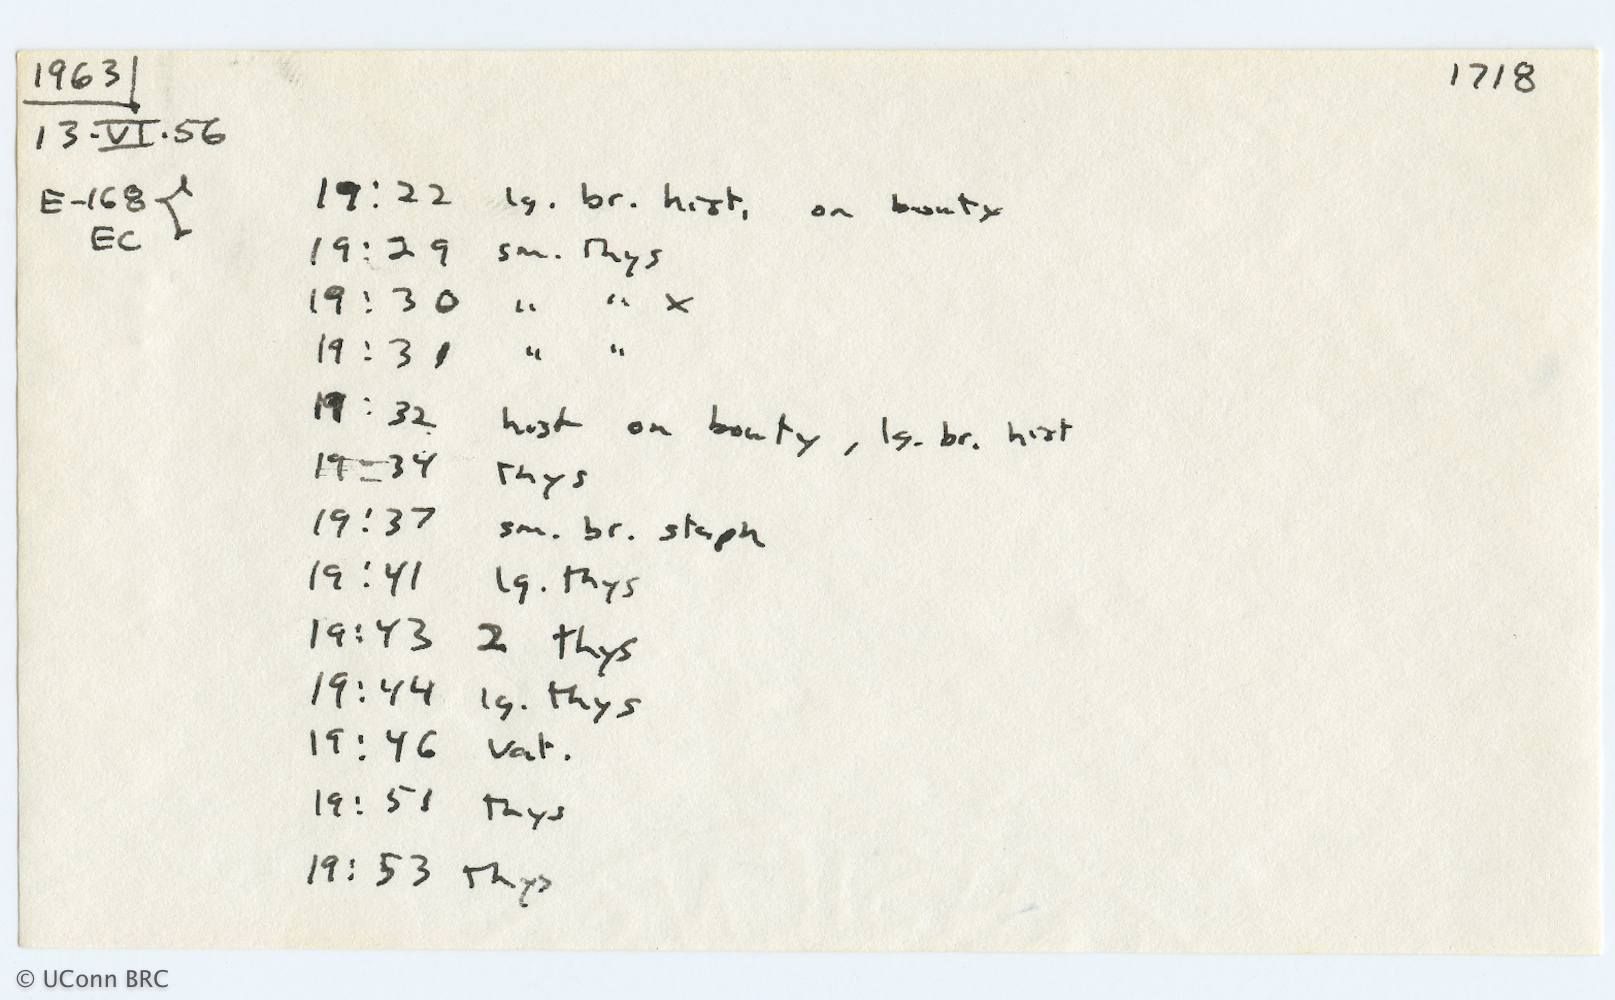 1963 1718
13·VI·56
E-168 19:22 lg. br. hist. on booty
EC 19:29 sm. thys
19:30 " " x
19:31 " "
19:32 hist on booty, lg. br. hist
19:34 thys
19:37 sm. br. staph
19:41 lg. thys
19:43 2 thys
19:44 lg. thys
19:46 Vat.
19:51 thys
19:53 thys
© UConn BRC